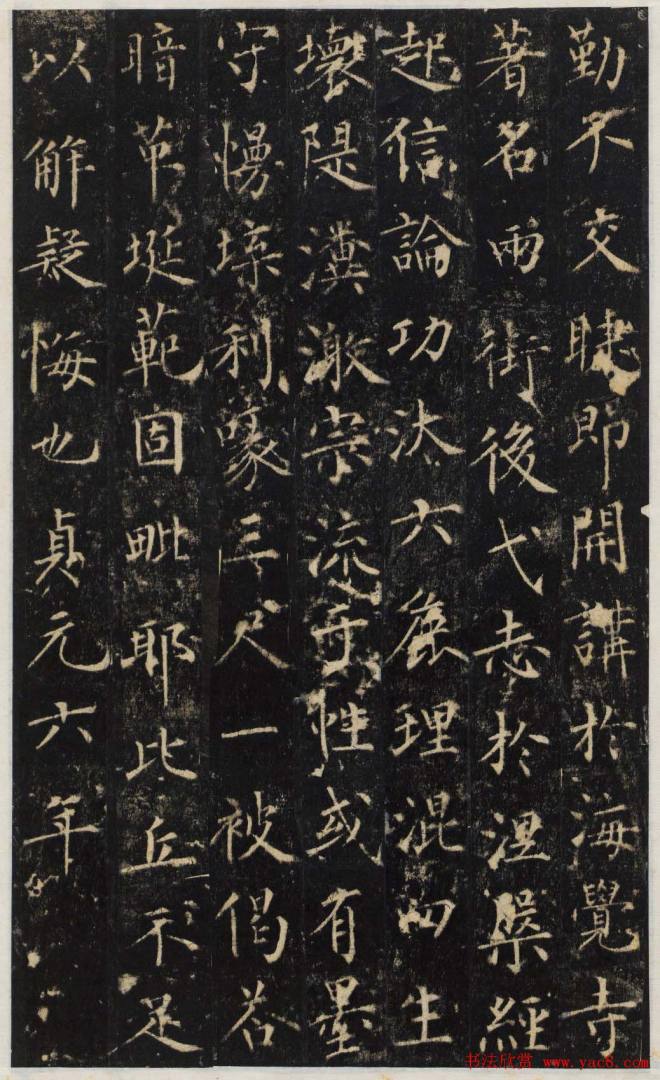 勤不交睫即開講於海覺寺
著名兩街後弋志於涅槃經
起信論功汰六塵理混四生
壞隄瀵潎宗流于性或有墨
守慢垛利喙三尺一被偈荅
暗革埏範固毗耶比丘不足
以觧疑悔也貞元六年
书法欣赏 www.yac8.com